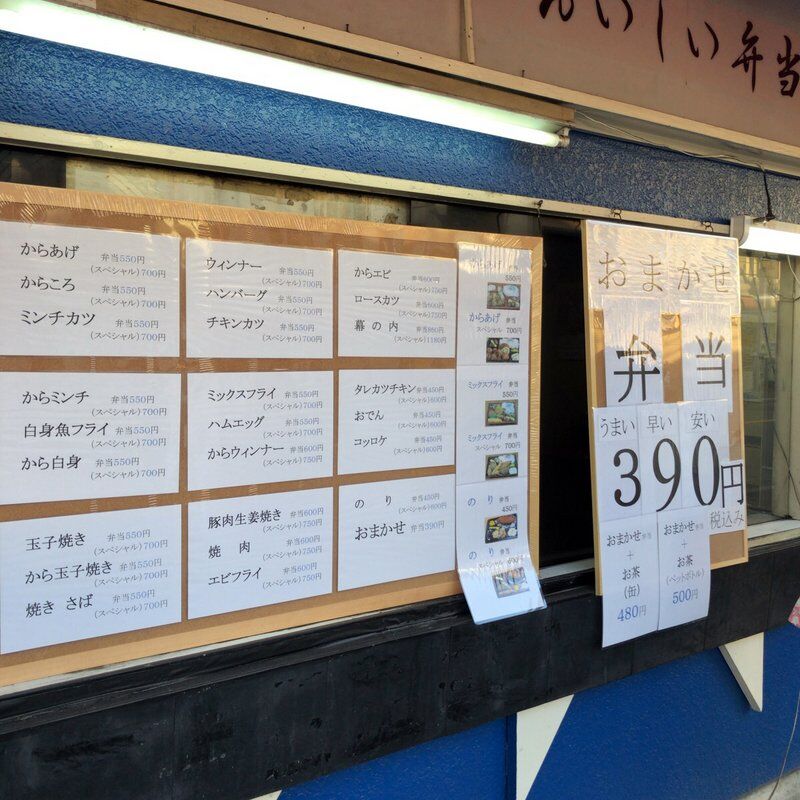 おいしい弁当
からあげ 弁当550円
(スペシャル)700円
からころ 弁当550円
(スペシャル)700円
ミンチカツ 弁当550円
(スペシャル)700円
ウィンナー 弁当550円
(スペシャル)700円
ハンバーグ 弁当550円
(スペシャル)700円
チキンカツ 弁当550円
(スペシャル)700円
からエビ 弁当600円
(スペシャル)750円
ロースカツ 弁当600円
(スペシャル)750円
幕の内 弁当860円
(スペシャル)1180円
からミンチ 弁当550円
(スペシャル)700円
白身魚フライ 弁当550円
(スペシャル)700円
から白身 弁当550円
(スペシャル)700円
ミックスフライ 弁当550円
(スペシャル)700円
ハムエッグ 弁当550円
(スペシャル)700円
からウィンナー 弁当600円
(スペシャル)750円
タレカツチキン 弁当450円
(スペシャル)600円
おでん 弁当450円
(スペシャル)600円
コッロケ 弁当450円
(スペシャル)600円
玉子焼き 弁当550円
(スペシャル)700円
から玉子焼き 弁当550円
(スペシャル)700円
焼き さば 弁当550円
(スペシャル)700円
豚肉生姜焼き 弁当600円
(スペシャル)750円
焼 肉 弁当600円
(スペシャル)750円
エビフライ 弁当600円
(スペシャル)750円
の り 弁当450円
(スペシャル)600円
おまかせ 弁当390円
からあげ 弁当
550円
からあげ 弁当
スペシャル 700円
ミックスフライ 弁当
550円
ミックスフライ 弁当
スペシャル 700円
の り 弁当
450円
の り 弁当
スペシャル 600円
おまかせ
弁当
うまい 早い 安い
390円
税込み
おまかせ弁当
+
お茶
(缶)
480円
おまかせ弁当
+
お茶
(ペットボトル)
500円